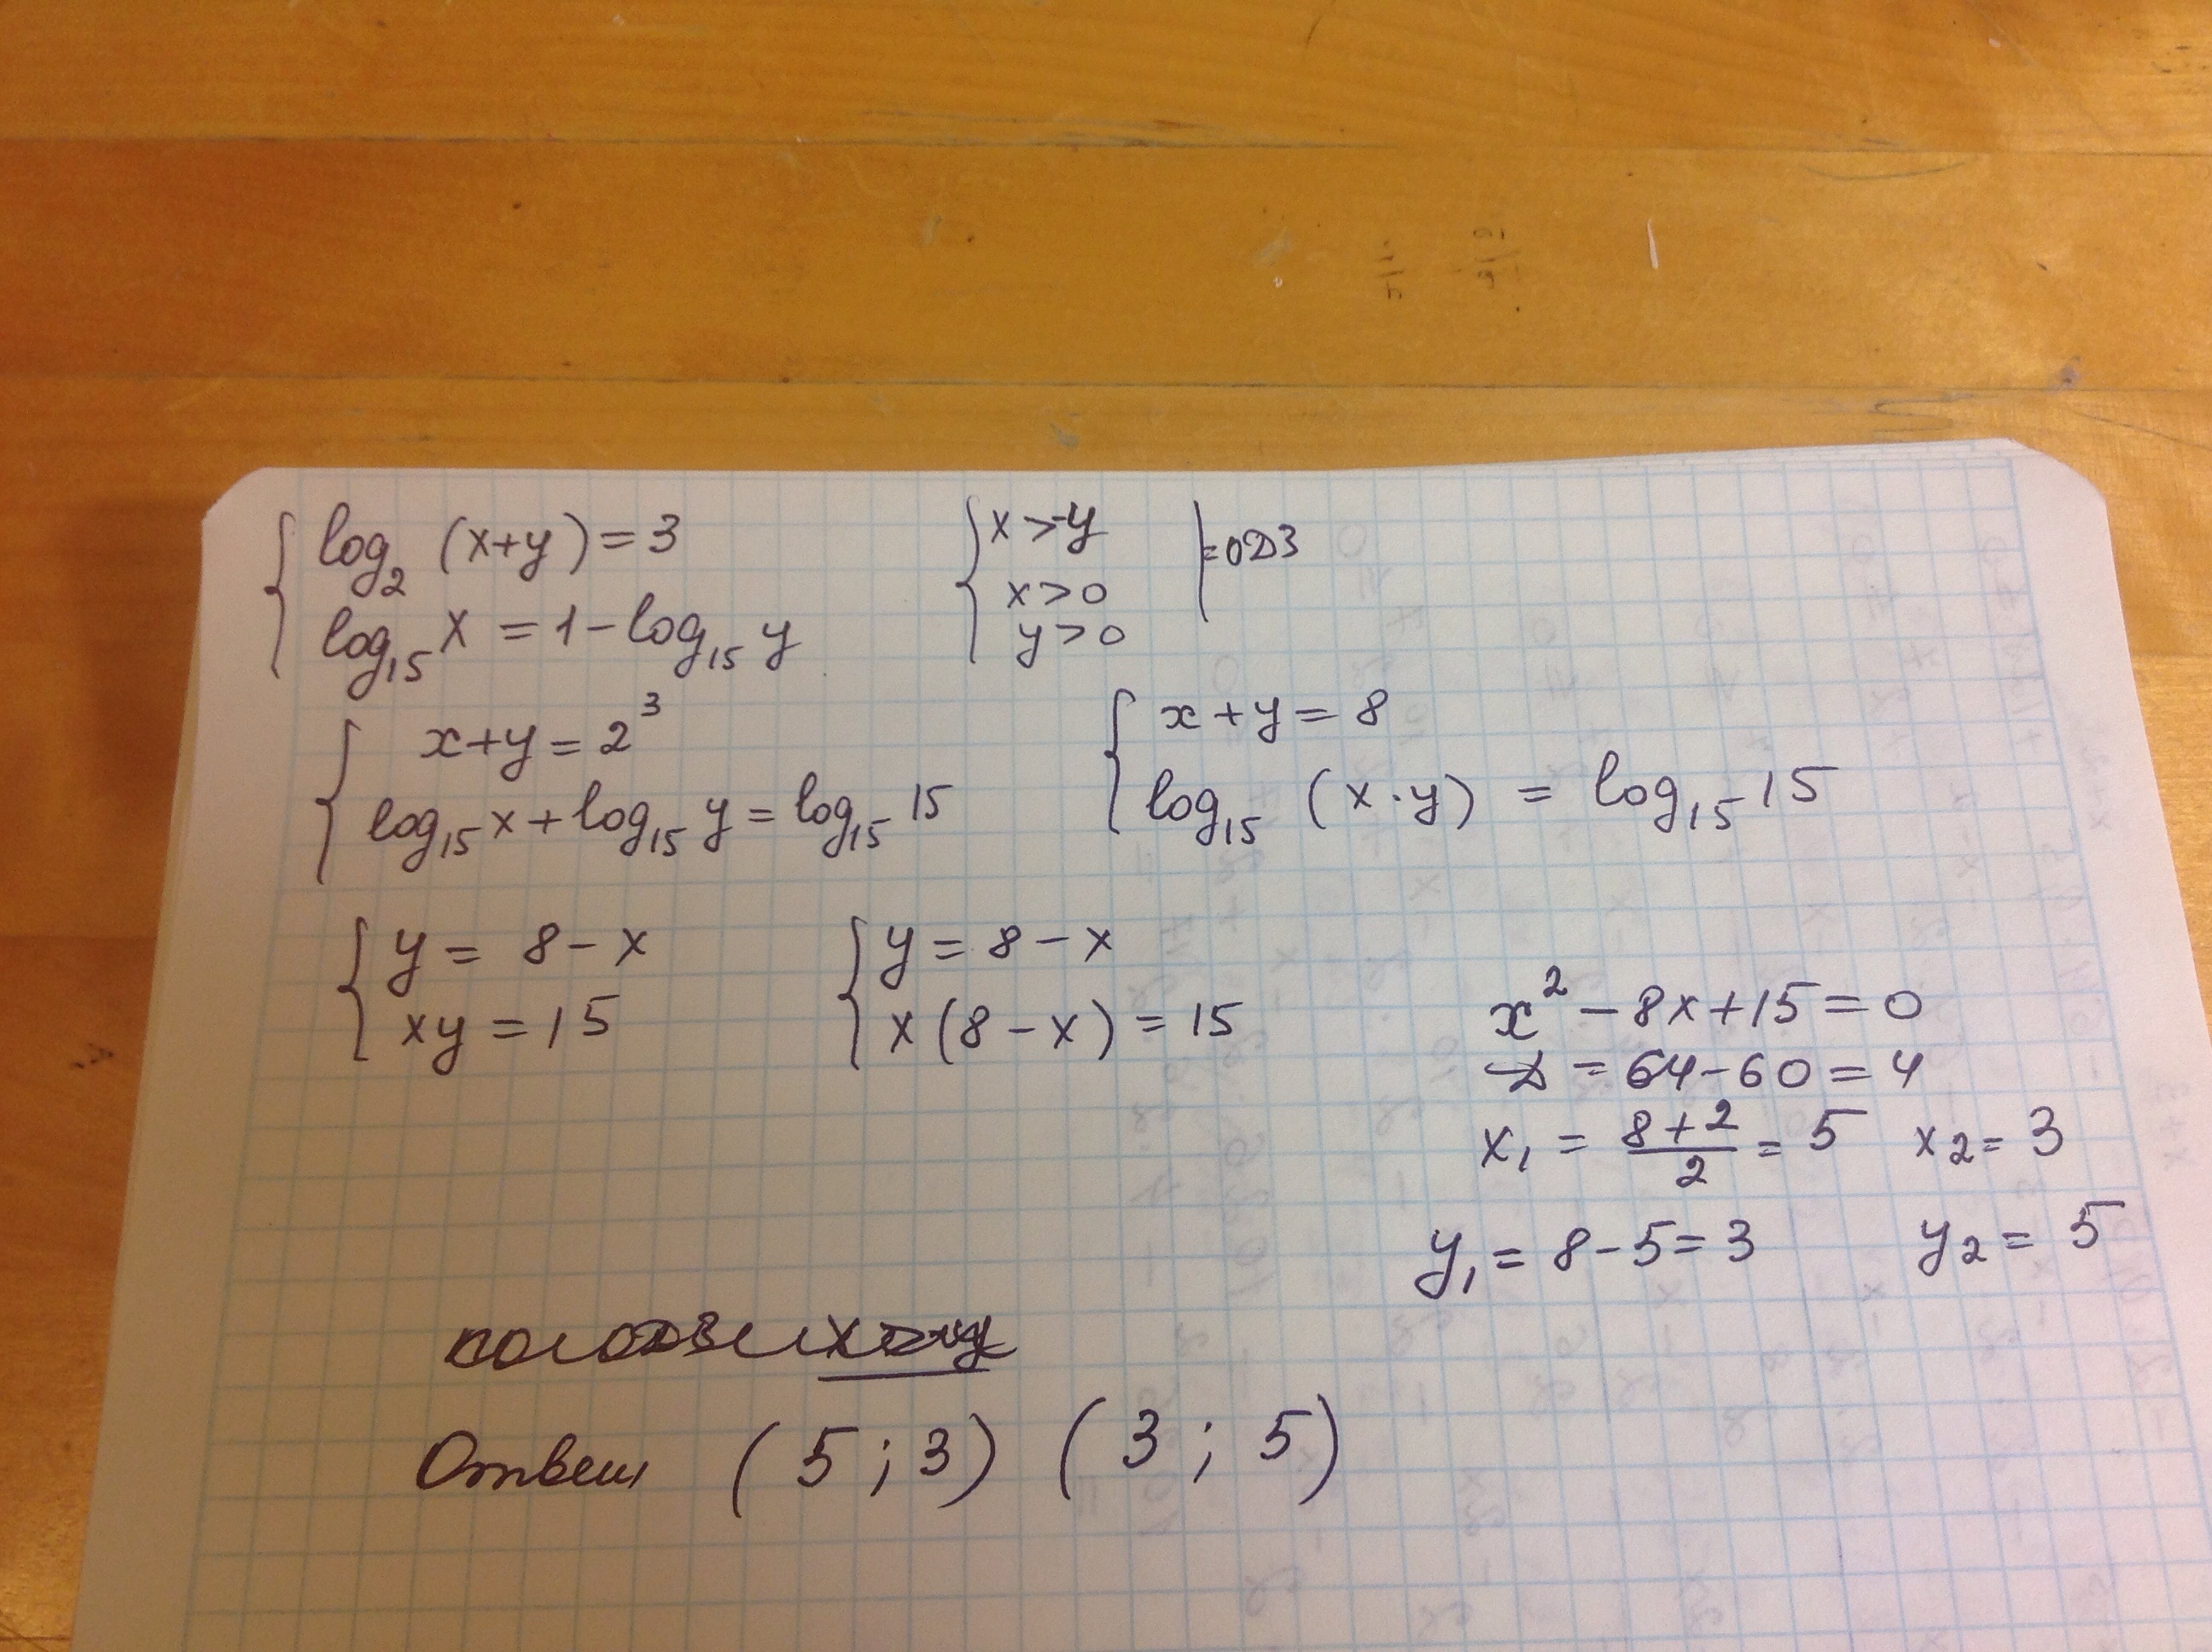 log₂ (x+y) = 3
log₁₅ x = 1 - log₁₅ y
x > -y
x > 0
y > 0
= ОДЗ
x + y = 2³
log₁₅ x + log₁₅ y = log₁₅ 15
x + y = 8
log₁₅ (x · y) = log₁₅ 15
y = 8 - x
xy = 15
y = 8 - x
x (8 - x) = 15
x² - 8x + 15 = 0
D = 64 - 60 = 4
x₁ = (8+2)/2 = 5 x₂ = 3
y₁ = 8 - 5 = 3 y₂ = 5
Ответ (5 ; 3) (3 ; 5)